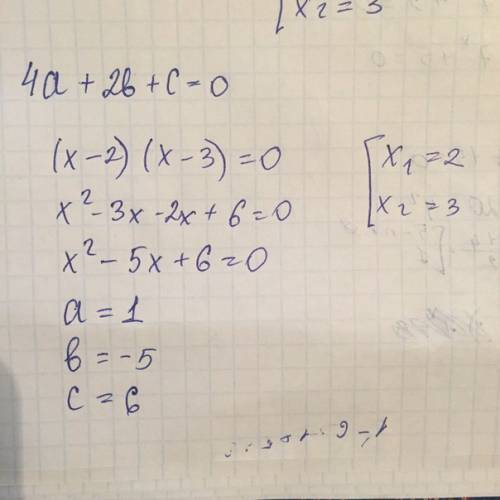 x₂ = 3
4a + 2b + c = 0
(x - 2) (x - 3) = 0
x² - 3x - 2x + 6 = 0
x² - 5x + 6 = 0
a = 1
b = -5
c = 6
[ x₁ = 2
x₂ = 3